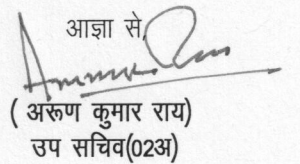 आज्ञा से,
( अरूण कुमार राय)
उप सचिव(02अ)